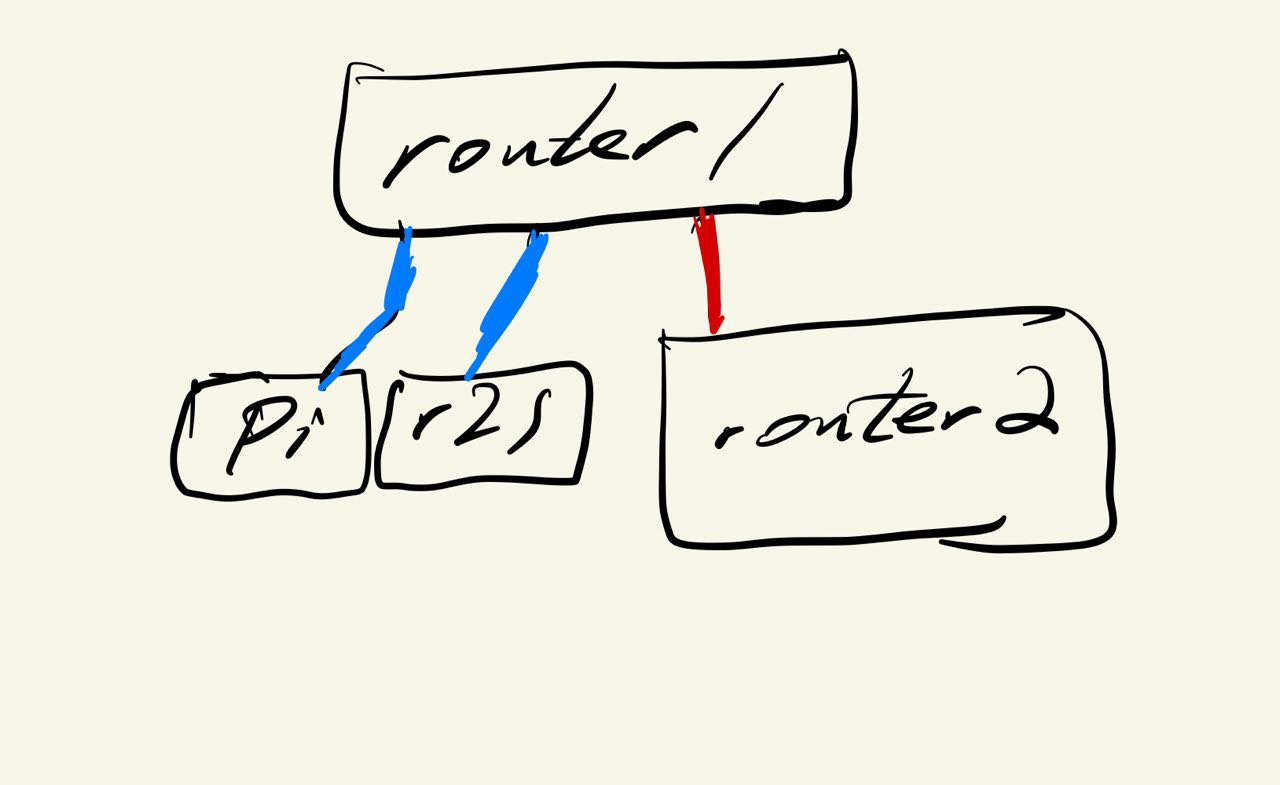 router 1
pi
r2s
router 2